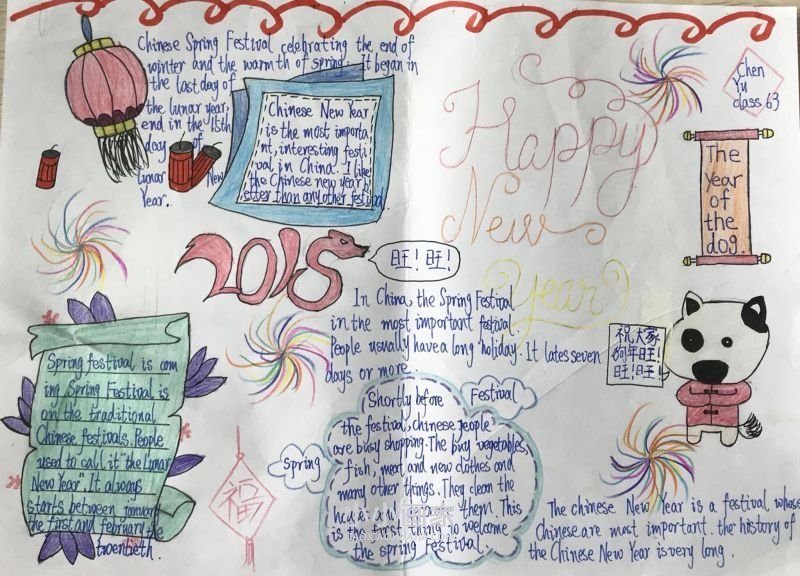 Chinese Spring Festival celebrating the end of
winter and the warmth of spring. It began in
the last day of
the lunar year,
end in the 15th
day of
lunar New
Year.
Chinese New Year
is the most importa
nt, interesting festi
val in China. I like
the Chinese new year b
etter than any other festival
Happy
New
Year
Chen
Yu
class 63
The
year
of
the
dog.
2018
旺!旺!
In China, the Spring Festival
in the most important festival.
People usually have a long holiday. It lates seven
days or more.
祝大家
狗年旺!
旺!旺!
Spring festival is com
ing Spring Festival is
on the traditional
Chinese festivals. People
used to call it "the lunar
New Year". It always
starts between january
the first and february the
twentieth.
福
Spring
Festival
Shortly before
the festival, chinese people
are busy shopping. The buy vegetables,
fish, meat and new clothes and
many other things. They clean the
them. This
is the first thing to welcome
the spring Festival.
The chinese New Year is a festival whose
Chinese are most important. the history of
the Chinese New Year is very long.